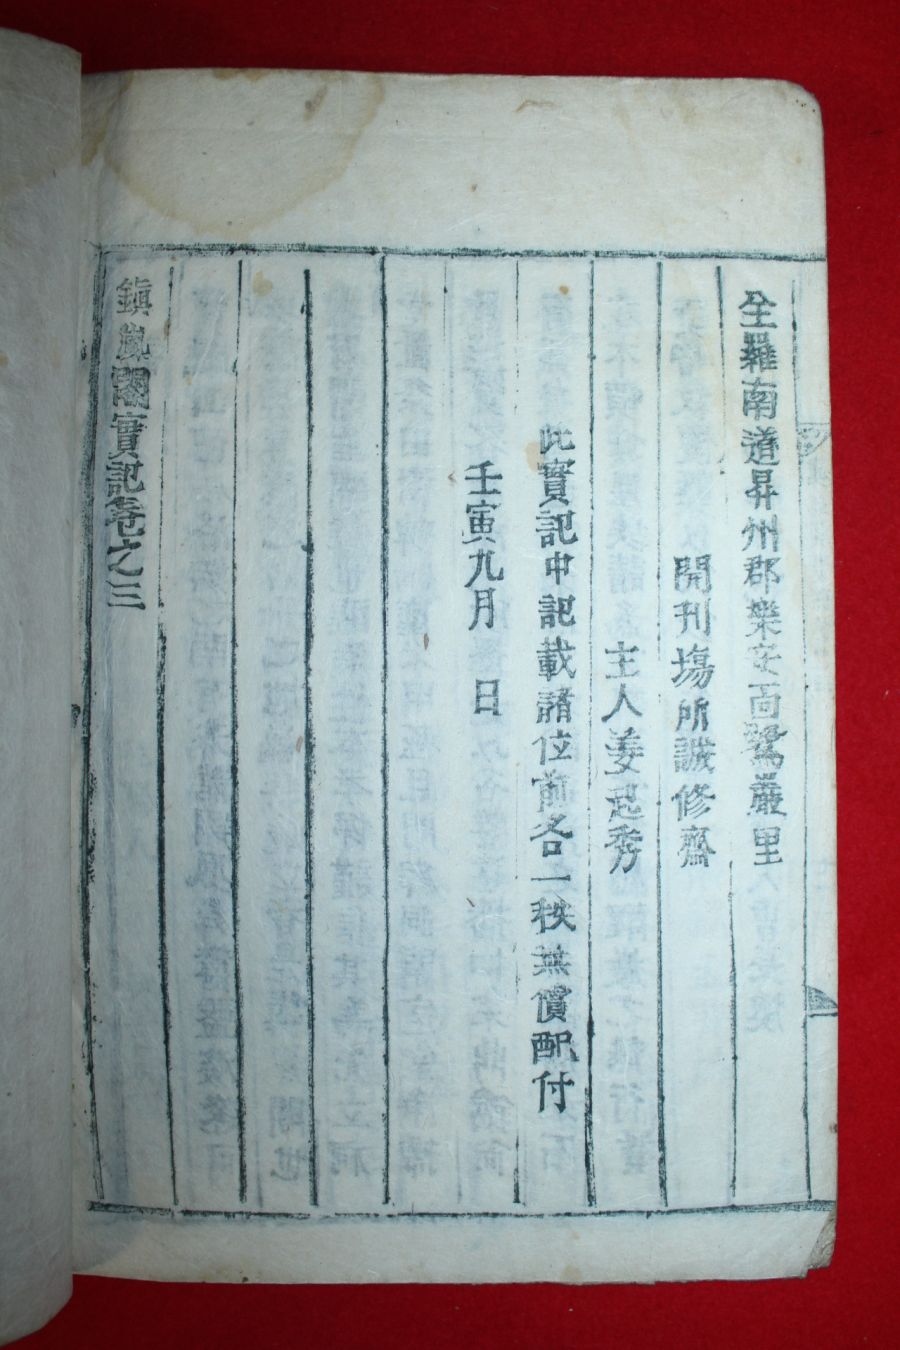 全羅南道昇州郡樂安面鸞巖里
開刊塲所誠修齋
主人姜起秀
此實記中記載諸位前各一秩無償配付
壬寅九月 日
鎭嵐閣實記卷之三